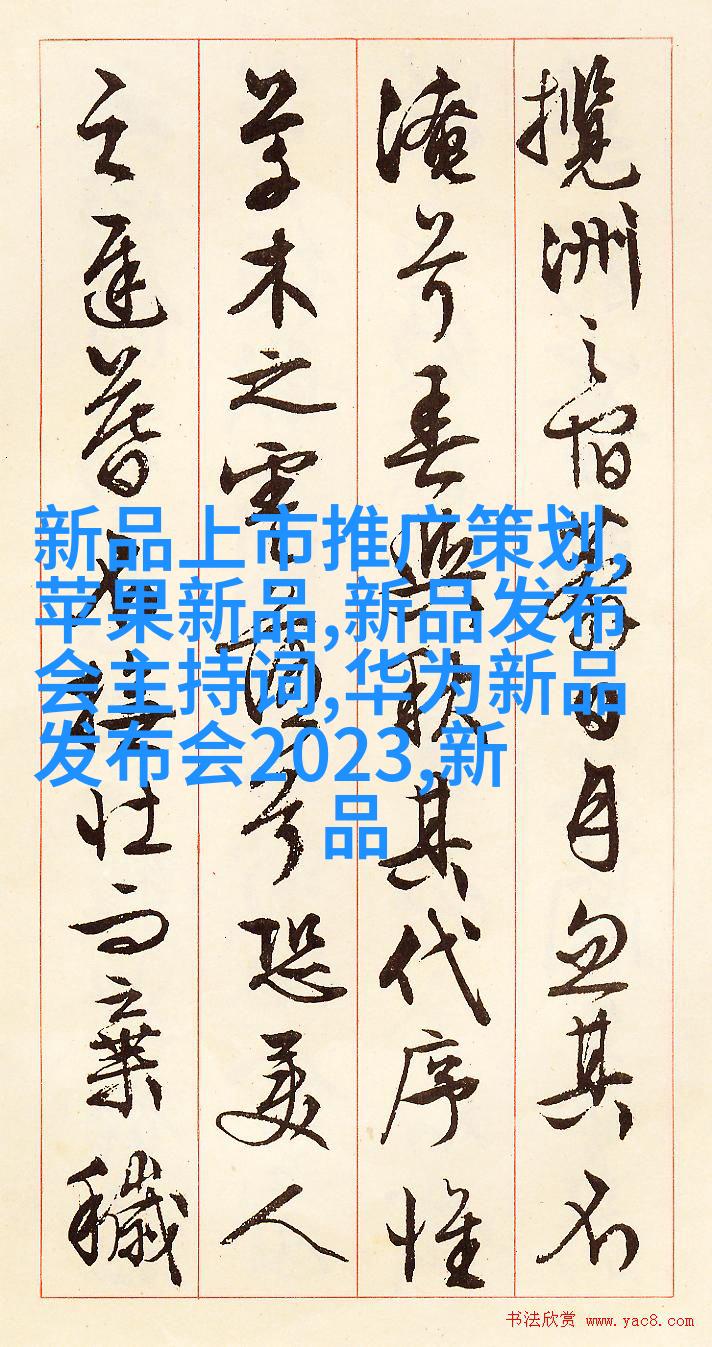 攬洲之宿莽日月忽其不
淹兮春與秋其代序惟
草木之零落兮恐美人
之遲暮不撫壯而棄穢
新品上市推广策划,
苹果新品,新品发布
会主持词,华为新品
发布会2023,新
品
书法欣赏 www.yac8.com